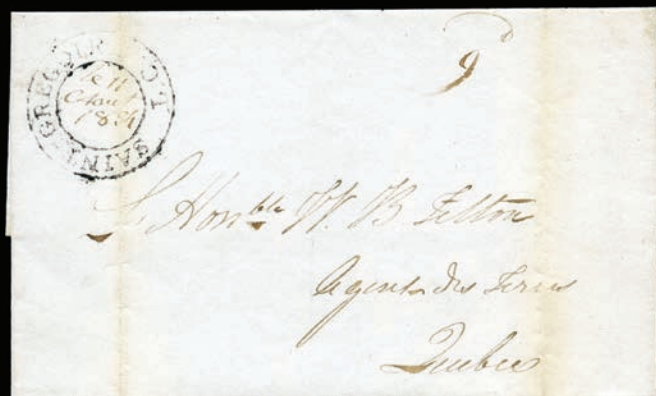 SAINT-GREGOIRE L.C.
9
L'Honble W. B Felton
Agent des Terres
Quebec